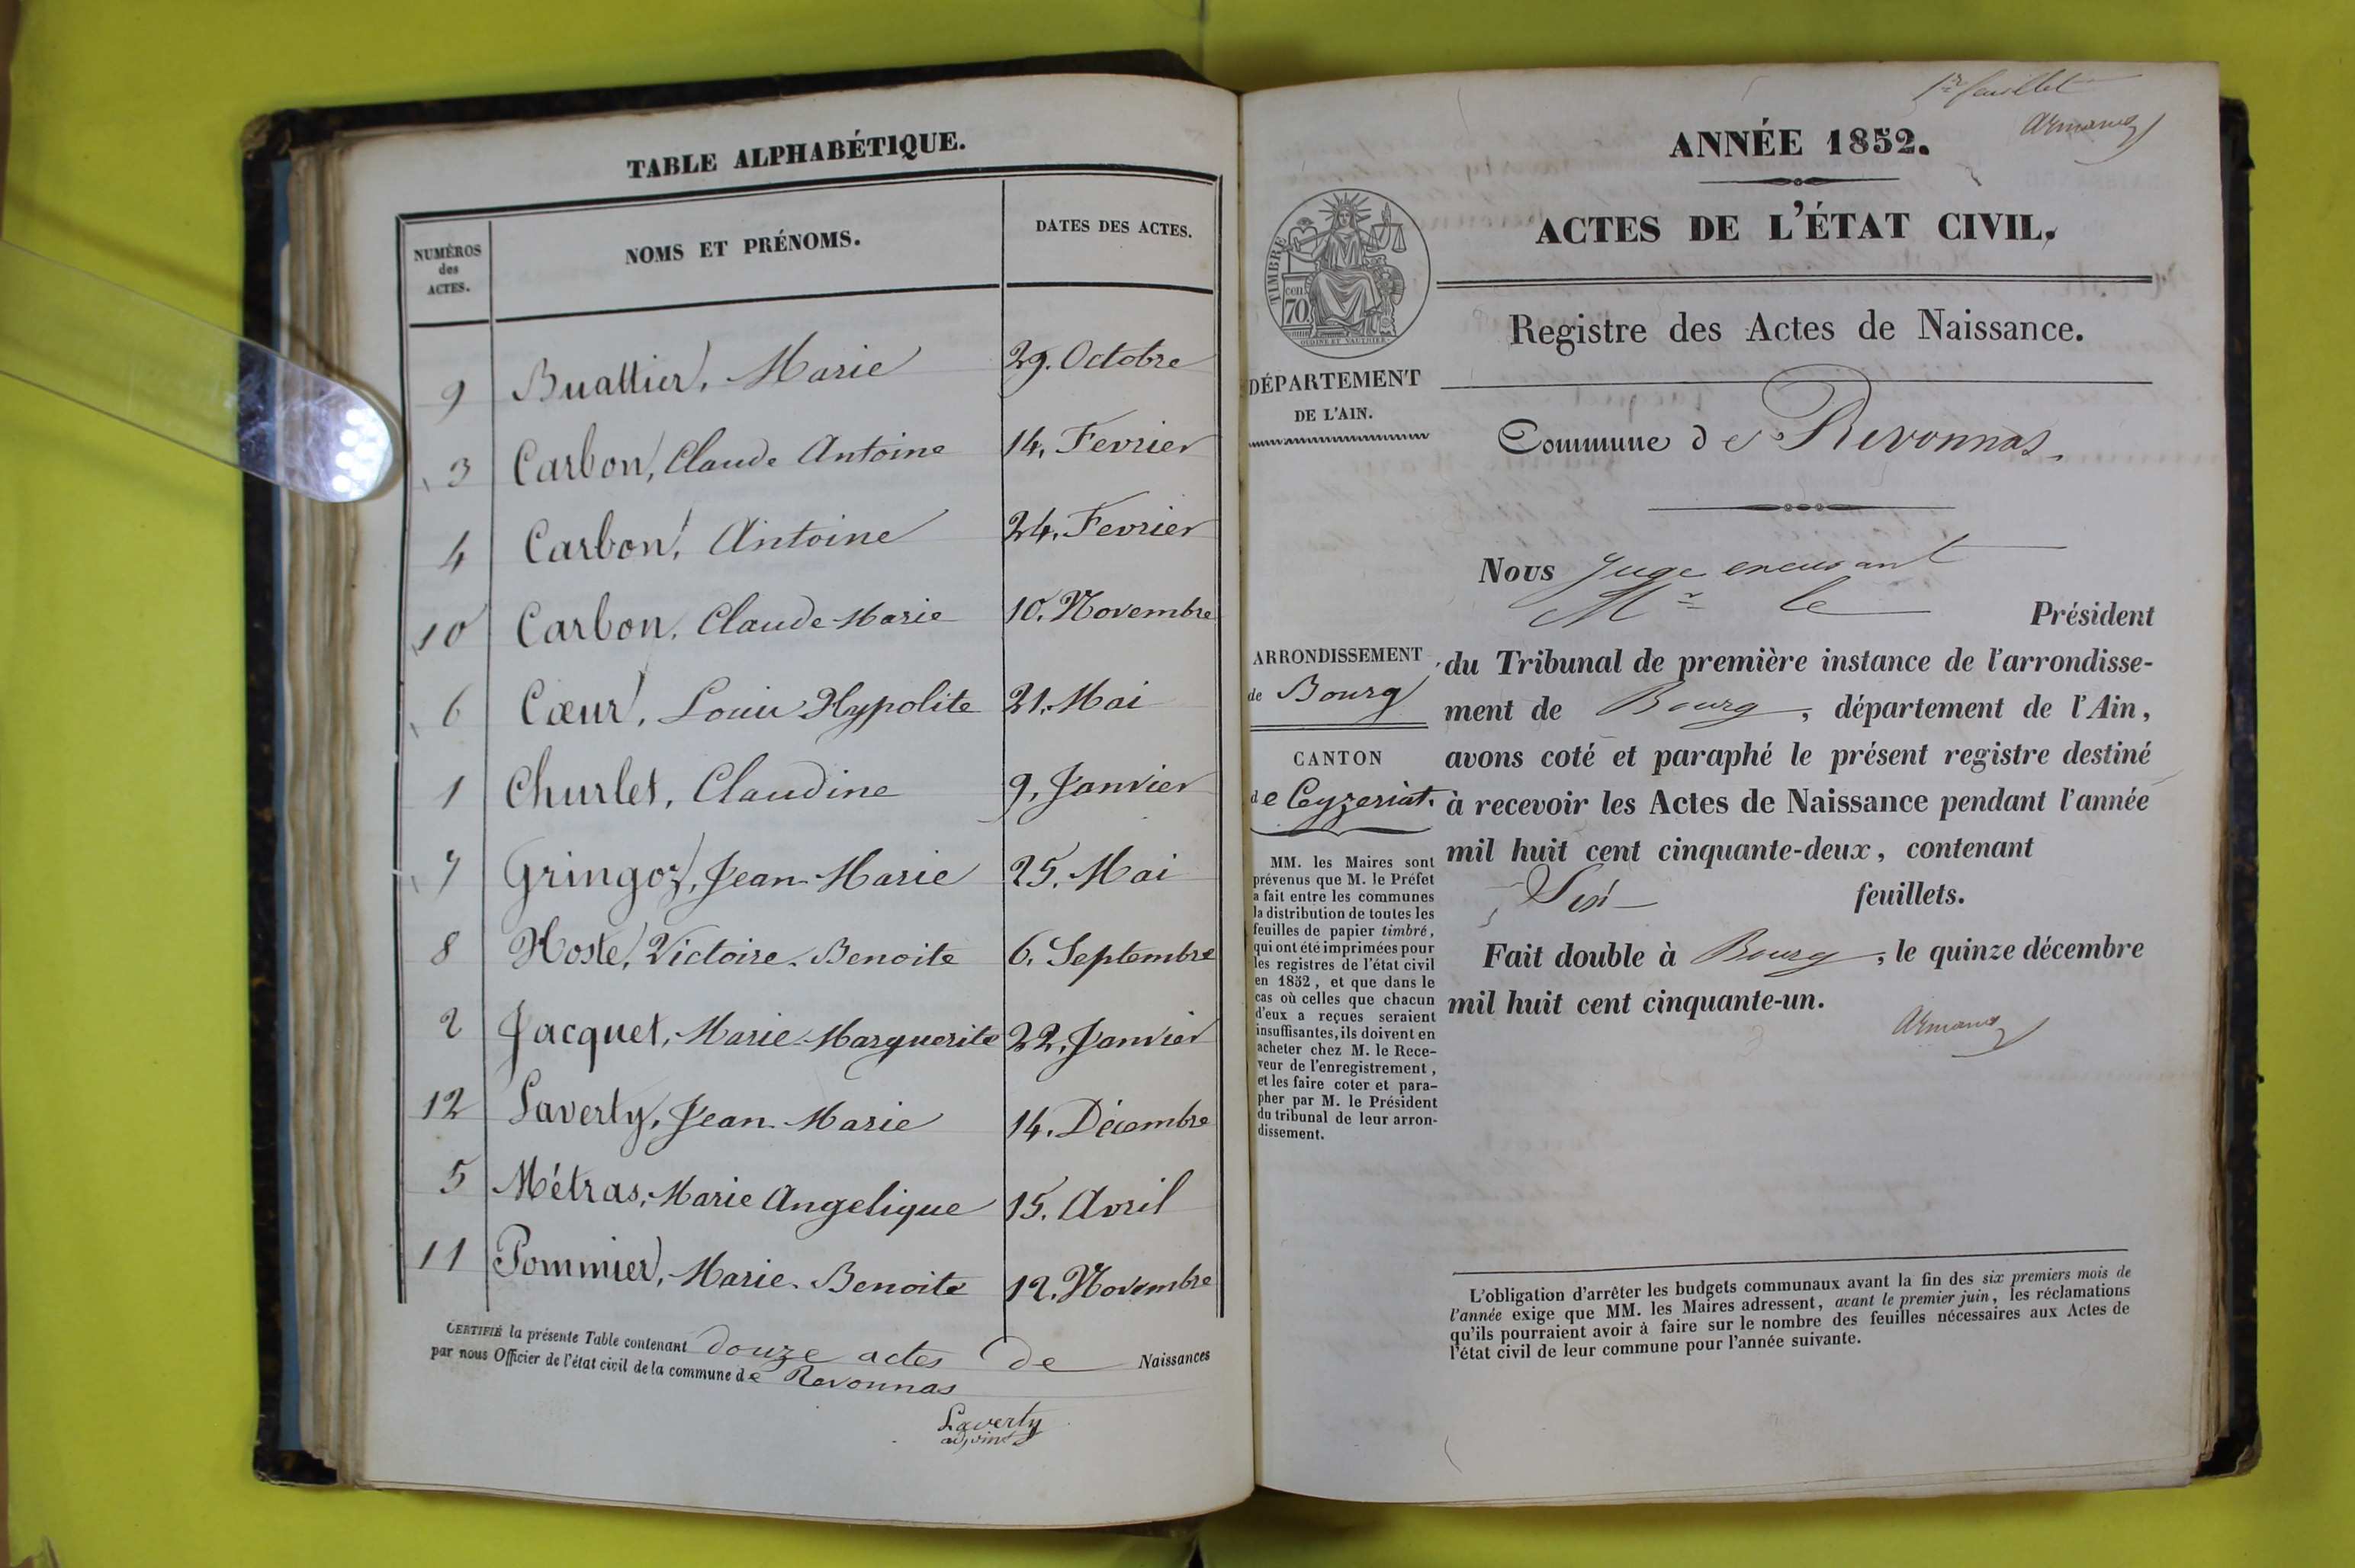 TABLE ALPHABÉTIQUE.
NUMÉROS
des
ACTES.
NOMS ET PRÉNOMS.
DATES DES ACTES.
9 Buattier, Marie 29. Octobre
3 Carbon, Claude Antoine 14. Fevrier
4 Carbon, Antoine 24. Fevrier
10 Carbon, Claude-Marie 10. Novembre
6 Cœur, Louis Hypolite 21. Mai
1 Churlet, Claudine 9. Janvier
7 Gringoz, Jean-Marie 25. Mai
8 Hoste, Victoire-Benoite 6. Septembre
2 Jacquet, Marie-Marguerite 22. Janvier
12 Laverty, Jean-Marie 14. Décembre
5 Métras, Marie Angelique 15. Avril
11 Pommier, Marie-Benoite 12. Novembre
CERTIFIÉ la présente Table contenant douze actes de Naissances
par nous Officier de l'état civil de la commune de Revonnas
Laverty
adjoint
1er feuillet
ANNÉE 1852.
ACTES DE L'ÉTAT CIVIL.
TIMBRE
70 cen
OUDINE ET VAUTHIER
Registre des Actes de Naissance.
DÉPARTEMENT
DE L'AIN.
Commune de Revonnas.
Nous Juge
Mr le Président
ARRONDISSEMENT
de Bourg
CANTON
de Ceyzeriat.
du Tribunal de première instance de l'arrondisse-
ment de Bourg, département de l'Ain,
avons coté et paraphé le présent registre destiné
à recevoir les Actes de Naissance pendant l'année
mil huit cent cinquante-deux, contenant
Six feuillets.
Fait double à Bourg, le quinze décembre
mil huit cent cinquante-un.
MM. les Maires sont
prévenus que M. le Préfet
a fait entre les communes
la distribution de toutes les
feuilles de papier timbré,
qui ont été imprimées pour
les registres de l'état civil
en 1852, et que dans le
cas où celles que chacun
d'eux a reçues seraient
insuffisantes, ils doivent en
acheter chez M. le Rece-
veur de l'enregistrement,
et les faire coter et para-
pher par M. le Président
du tribunal de leur arron-
dissement.
L'obligation d'arrêter les budgets communaux avant la fin des six premiers mois de
l'année exige que MM. les Maires adressent, avant le premier juin, les réclamations
qu'ils pourraient avoir à faire sur le nombre des feuilles nécessaires aux Actes de
l'état civil de leur commune pour l'année suivante.